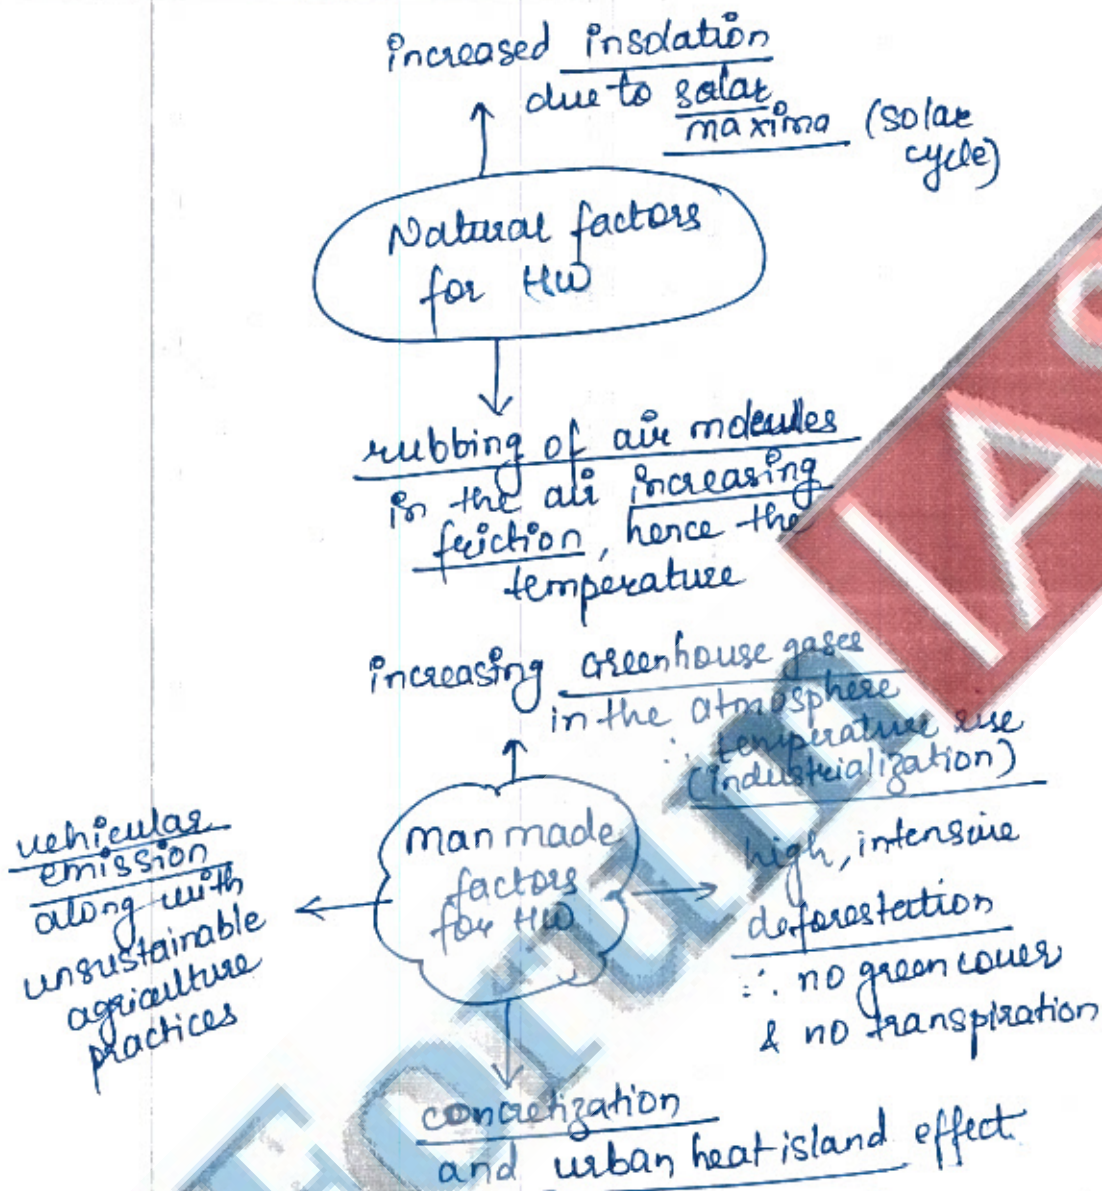 increased insolation
due to solar
maxima (solar
cycle)
Natural factors
for HW
rubbing of air molecules
in the air increasing
friction, hence the
temperature
increasing Greenhouse gases
in the atmosphere
∴ temperature rise
(industrialization)
man made
factors
for HW
vehicular
emission
along with
unsustainable
agriculture
practices
high, intensive
deforestation
∴ no green cover
& no transpiration
concretization
and urban heat island effect
Forum IAS